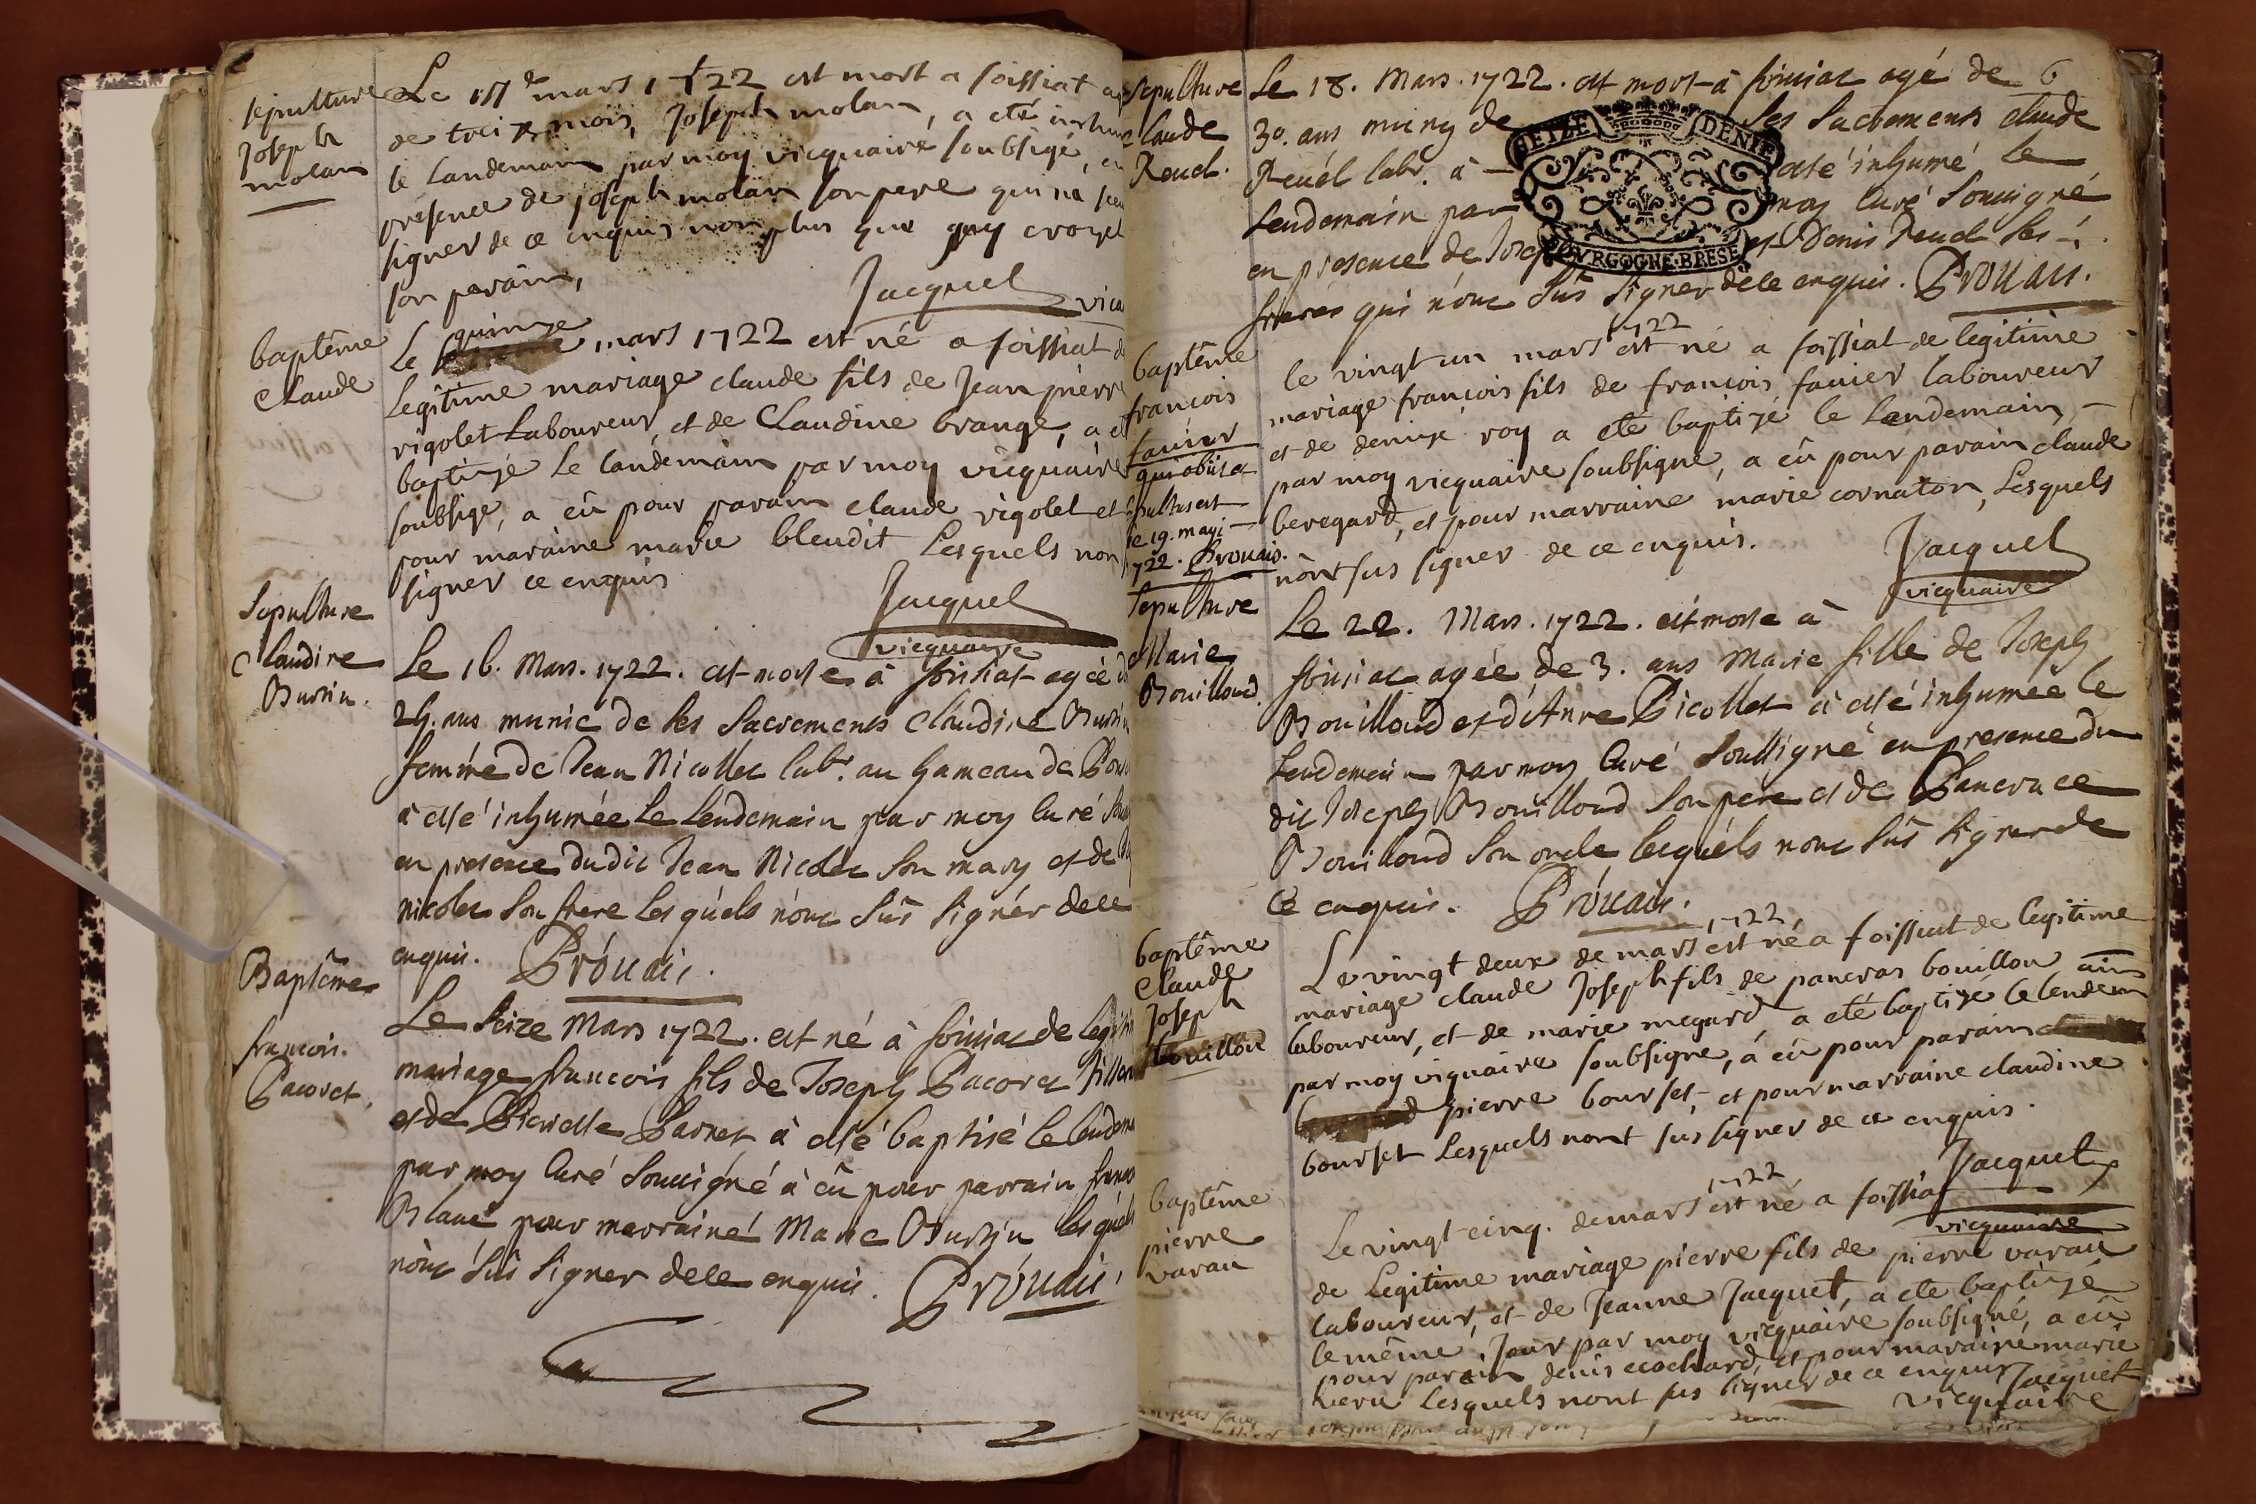 sepulture
Joseph
molan
Le mars 1722 est mort a foissiat
de trois mois, Joseph molan, a eté
le landemain par moy vicquaire soubsigé, en
presence de joseph molan son pere qui na sceu
signer de ce enquis non plus que guy croyet
son parain,
Jacquet
vica
baptême
Claude
Le quinze mars 1722 est né a foissiat de
Legitime mariage claude fils de Jean pierre
rigolet Laboureur, et de Claudine brange, a
baptizé le landemain par moy vicquaire
soubsige, a eû pour parain claude rigolet et
pour maraine marie bleudit Lesquels non
signer ce enquis
Jacquet
vicquaire
Sepulture
Claudine
Burtin.
Le 16. Mars. 1722. est morte à foissiat agée
ans munie de ses Sacrements Claudine Burtin
femme de Jean Nicollet labr. au hameau de
à esté inhumée le lendemain par moy curé
en presence dudit Jean Nicolet son mary et de
nicolet son frere lesquels n'ont sus signér de ce
enquis. Próuais.
Baptême
francois.
Pacoret.
Le seize Mars 1722. est né à foissiat de
mariage francois fils de Joseph Pacoret
et de Pierrette Parnet à esté baptisé le
par moy Curé Soussigné à eu pour parrain
Blanc pour marraine Marie Burtin lesquels
nont sus signer de ce enquis. Próuais.
Sepulture
Claude
Reud.
Le 18. Mars. 1722. est mort à foissiat agé de
30. ans muny de ses Sacrements claude
Reud labr. à esté inhumé le
Lendemain par moy Curé Soussigné
en presence de Joseph et Denis Reud ses
freres qui n'ont sus signer de ce enquis. Prouais.
SEIZE DENIE
BOVRGOGNE·BRESE
baptême
francois
favier
qui obiit et
sepultus est
19. maji
1722. Prouais.
le vingt un mars 1722 est né a foissiat de legitime
mariage francois fils de francois favier laboureur
et de denize roy a eté baptizé le landemain
par moy vicquaire soubsigne, a eû pour parain claude
beregard, et pour marraine marie cornaton, Lesquels
nont sus signer de ce enquis.
Jacquet
vicquaire
Sepulture
Marie
Bouilloud.
Le 22. Mars. 1722. est morte à
foissiat agée de 3. ans Marie fille de Joseph
Bouilloud et d'Anne Picollet à esté inhumée le
Lendemain par moy Curé Soussigné en presence du
dit Joseph Bouilloud son pere et de Pancrace
Bouilloud son oncle lesquels nont sus signer de
ce enquis. Próuais.
baptême
Claude
Joseph
bouillou
Le vingt deux de mars 1722 est né a foissiat de legitime
mariage claude Joseph fils de pancras bouillou
laboureur, et de marie megard, a eté baptizé le lendemain
par moy viquaire soubsigne, a eû pour parain
pierre bourset, et pour marraine claudine
bourset Lesquels nont sus signer de ce enquis.
Jacquet
vicquaire
baptême
pierre
varau
Le vingt cinq. de mars 1722 est né a foissiat
de Legitime mariage pierre fils de pierre varau
laboureur, et de Jeanne Jacquet, a ete baptizé
le même Jour par moy vicquaire soubsigné, a eû
pour parain denis ecochard, et pour maraine marie
Lesquels nont sus signer de ce enquis Jacquet
vicquaire